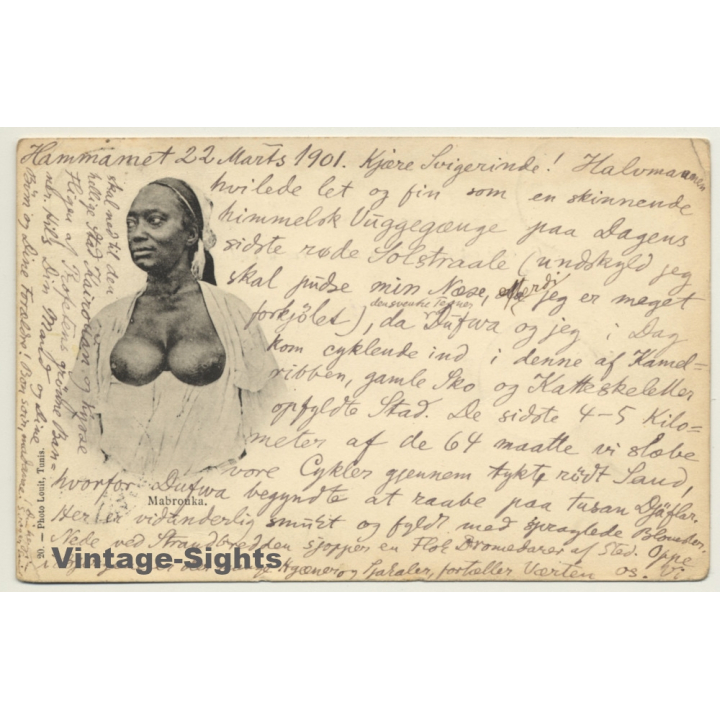 Hammamet 22 Marts 1901. Kjære Svigerinde! Halvmaanen
hvilede let og fin som en skinnende
himmelsk Vuggegænge paa Dagens
sidste røde Solstraale (undskyld jeg
skal pudse min Næse, jeg er meget
den svenske Tegner
forkjölet), da Dufwa og jeg i Dag
kom cyklende ind i denne af Kamel-
ribben, gamle Sko og Katteskeletter
opfyldte Stad. De sidste 4-5 Kilo=
meter af de 64 maatte vi slæbe
vore Cykler gjennem tykt rödt Sand,
hvorfor Dufwa begyndte at raabe paa tusan Djäflar.
Her er vidunderlig smukt og fyldt med spraglede Blomster.
Nede ved Strandbredden sjopper en Flok Dromedarer af Sted. Oppe
Hyæner og Sjakaler, fortæller Værten os. Vi
skal ned til den
hellige Stad Kairouan og kysse
Fligen af Profetens grønne Ban=
ner. Hils Din Mand og Dine
Børn og Dine Forældre! Bon soir, madame!
Mabrouka.
20. — Photo Louit, Tunis.
Vintage-Sights